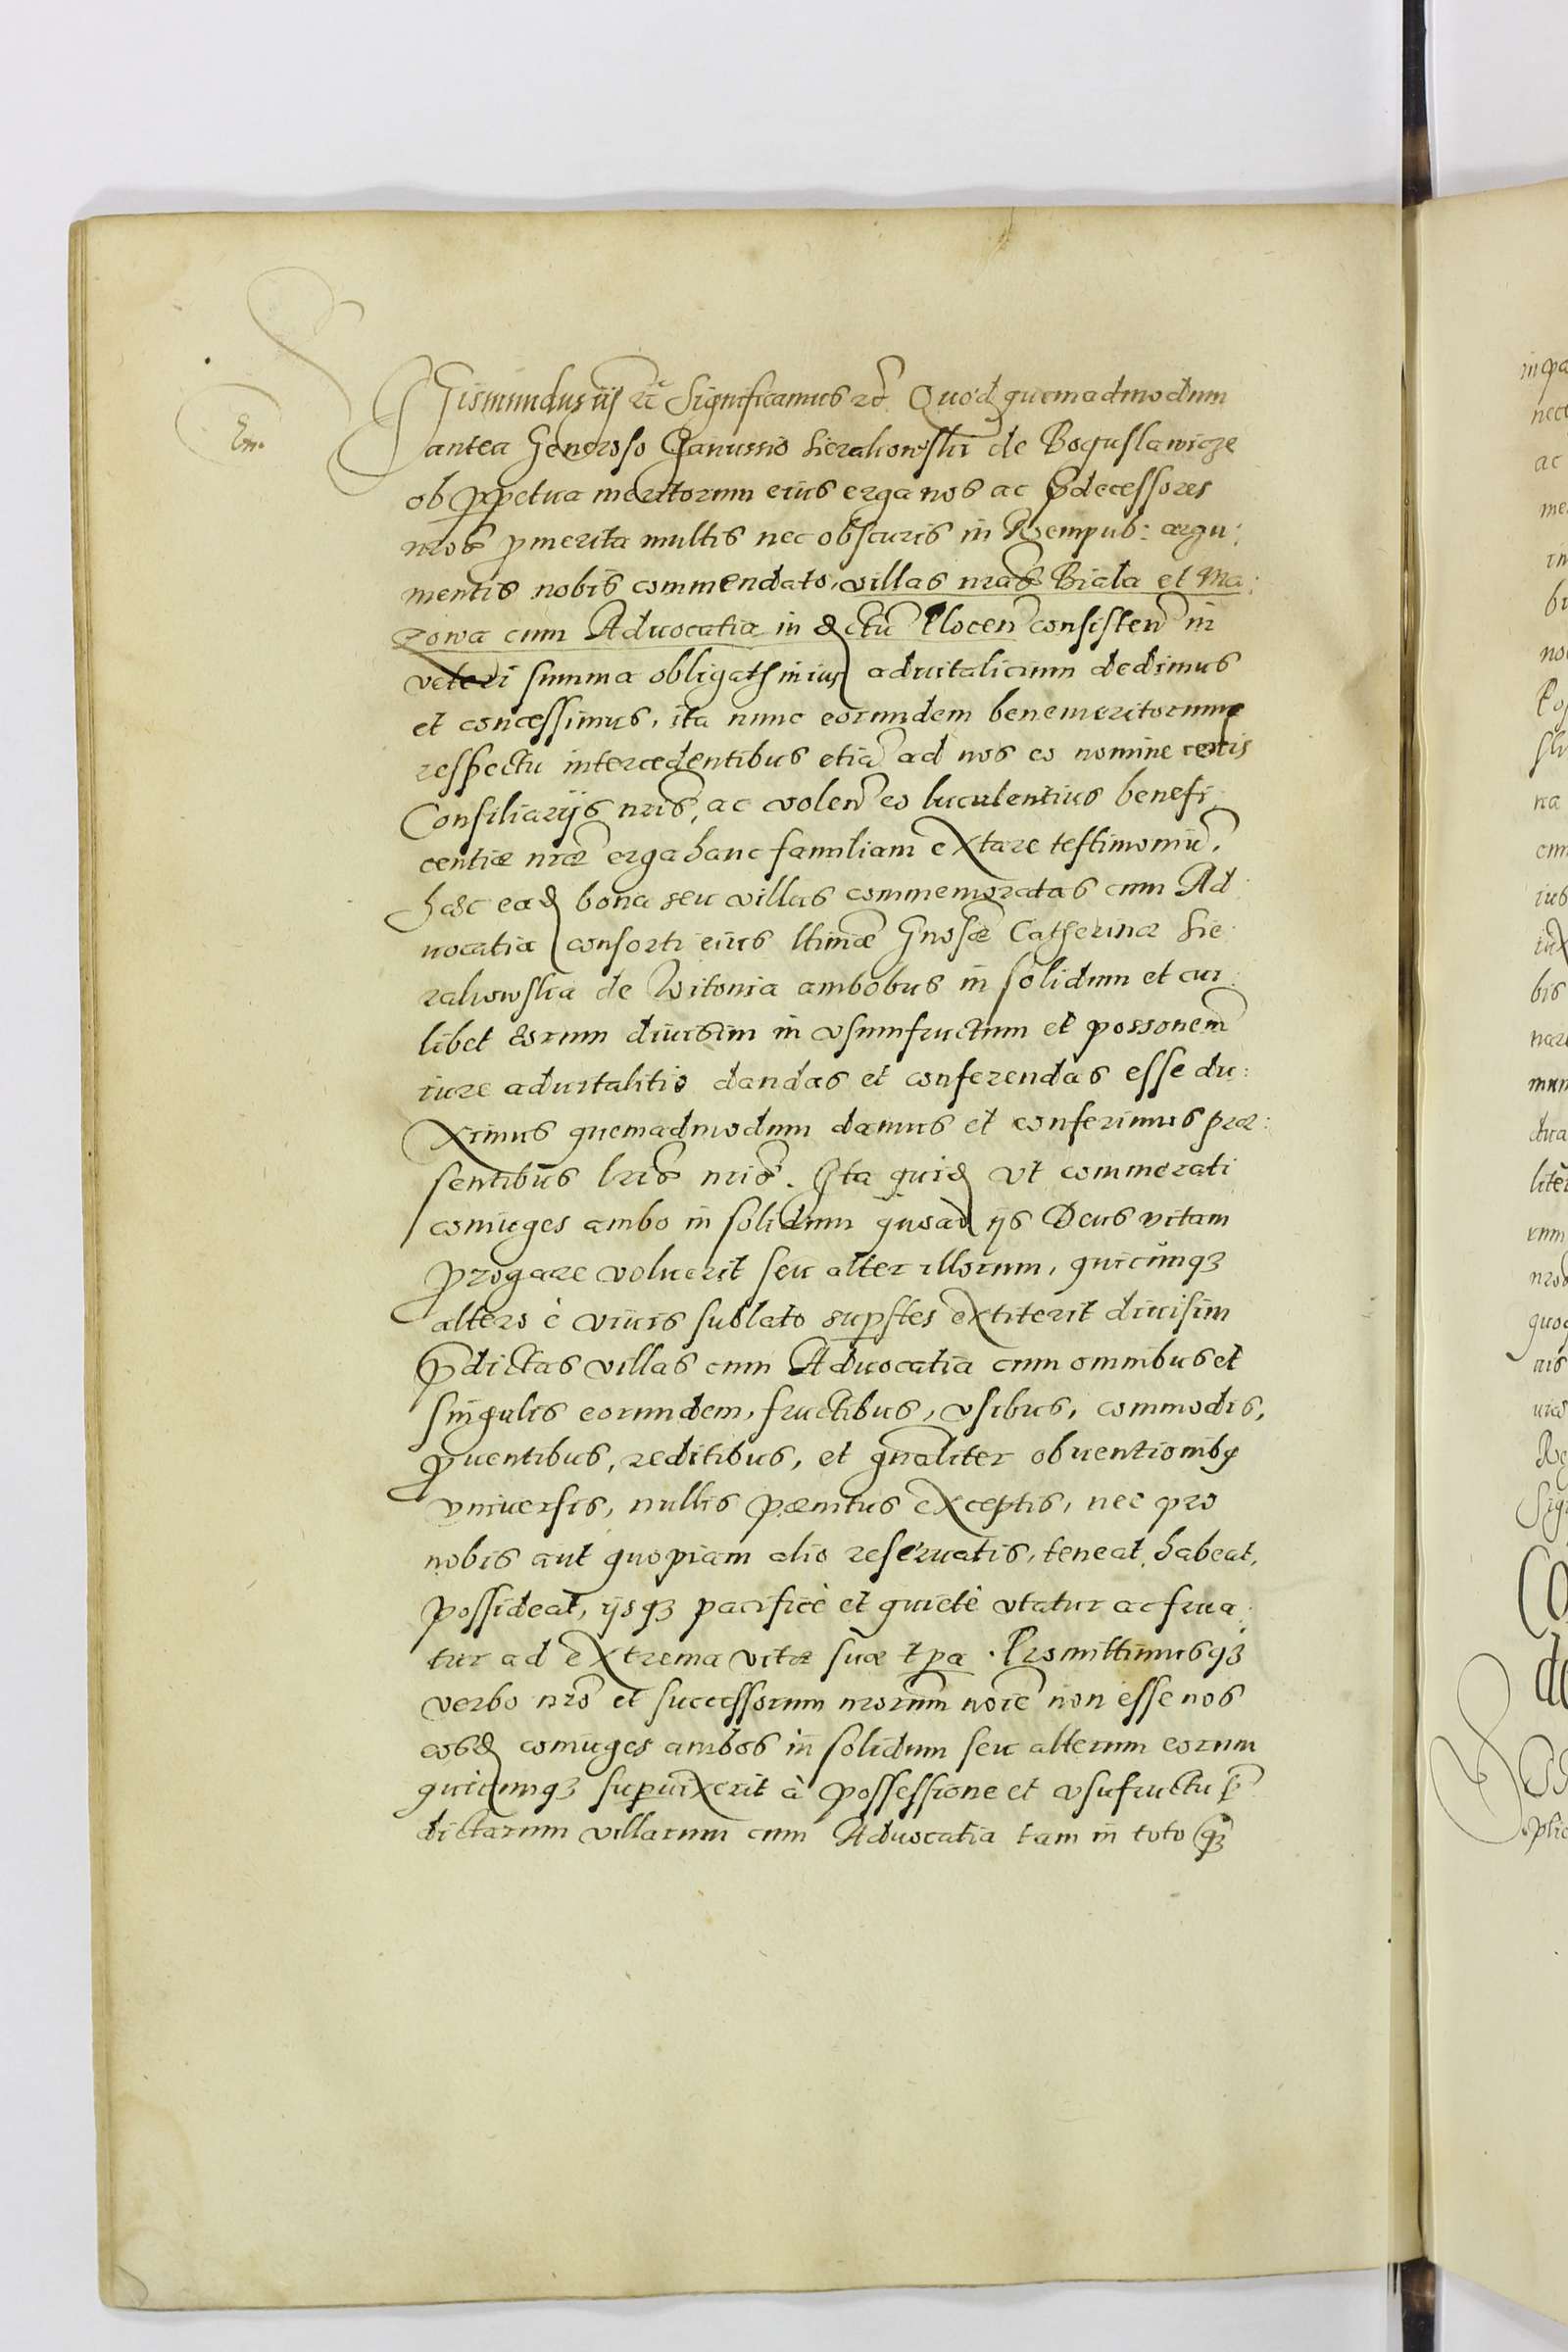 Em.
Sigismundus iij etc Significamus etc. Quod quemadmodum
antea Generoso Janussio Sierakowski de Boguslawicze
ob perpetua meritorum eius erga nos ac prdecessores
nros promerita multis nec obscuris in Rempub: argu:
mentis nobis commendato, villas nras Biala et Ma:
zowa cum Advocatia in dctu Plocen consisten in
veteri summa obligat inius advitalicium dedimus
et concessimus, ita nunc eorundem benemeritorum
respectu intercedentibus etia ad nos eo nomine certis
Consiliarijs nris, ac volen eo luculentius benefi:
centiæ nræ erga hanc familiam extare testimoniu,
hæc ead bona seu villas commemoratas cum Ad:
vocatia consorti eius ltimæ Gnosæ Catherinæ Sie:
rakowska de Witonia ambobus in solidum et cui:
libet eorum divisim in vsumfructum et possonem
iure advitalitio dandas et conferendas esse du:
ximus quemadmodum damus et conferimus præ:
sentibus lris nris. Ita quid vt commerati
coniuges ambo in solidum quoad ijs Deus vitam
prorogare voluerit seu alter illorum, quicunqz
altero è vivis sublato supstes extiterit divisim
prdictas villas cum Advocatia cum omnibus et
singulis eorundem, fructibus, vsibus, commodis,
proventibus, reditibus, et gnaliter obventionibq
vniversis, nullis pænitus exceptis, nec pro
nobis aut quopiam alio reservatis, teneat, habeat,
possideat, ijsqz pacificè et quietè vtatur ac frua:
tur ad extrema vitæ suæ tpa. Promittimusqz
verbo nro et successorum nrorum noie non esse nos
eosd coniuges ambos in solidum seu alterum eorum
quicunqz supvixerit à possessione et vsufructu pr
dictarum villarum cum Advocatia tam in toto qz